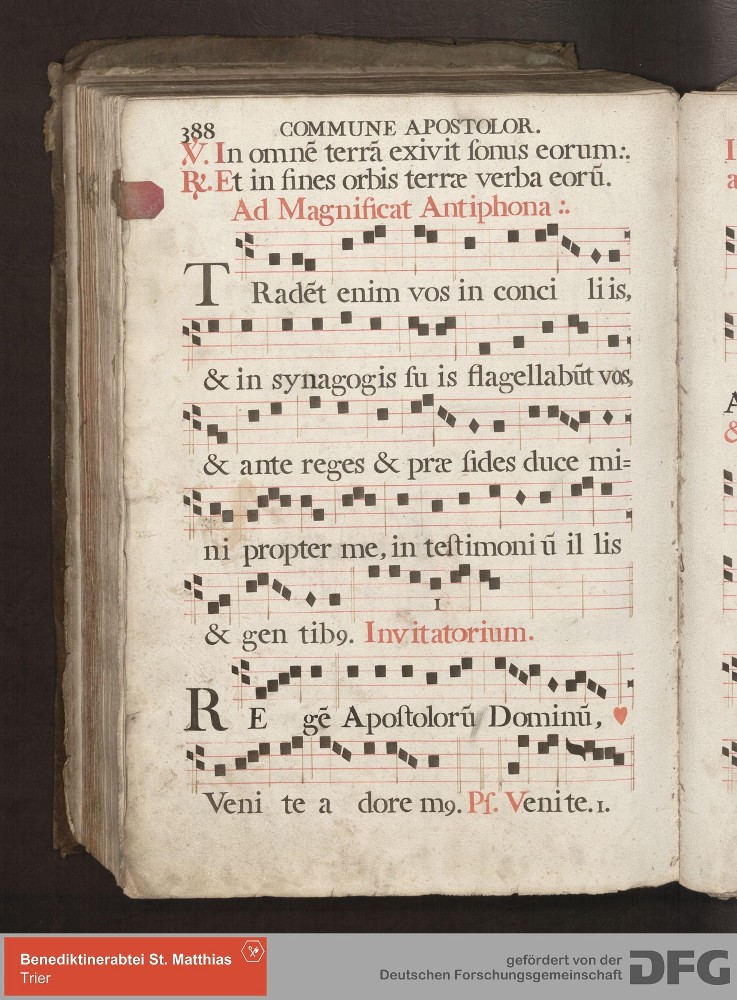 388 COMMUNE APOSTOLOR.
℣. In omnē terrā exivit ſonus eorum:.
℟. Et in fines orbis terræ verba eorū.
Ad Magnificat Antiphona :.
TRadēt enim vos in conci liis,
& in synagogis ſu is flagellabūt vos,
& ante reges & præ ſides duce mi=
ni propter me, in teſtimoni ū il lis
1
& gen tib9. Invitatorium.
RE gē Apoſtolorū Dominū,
Veni te a dore m9. Pſ. Venite. 1.
Benediktinerabtei St. Matthias
Trier
gefördert von der
Deutschen Forschungsgemeinschaft DFG